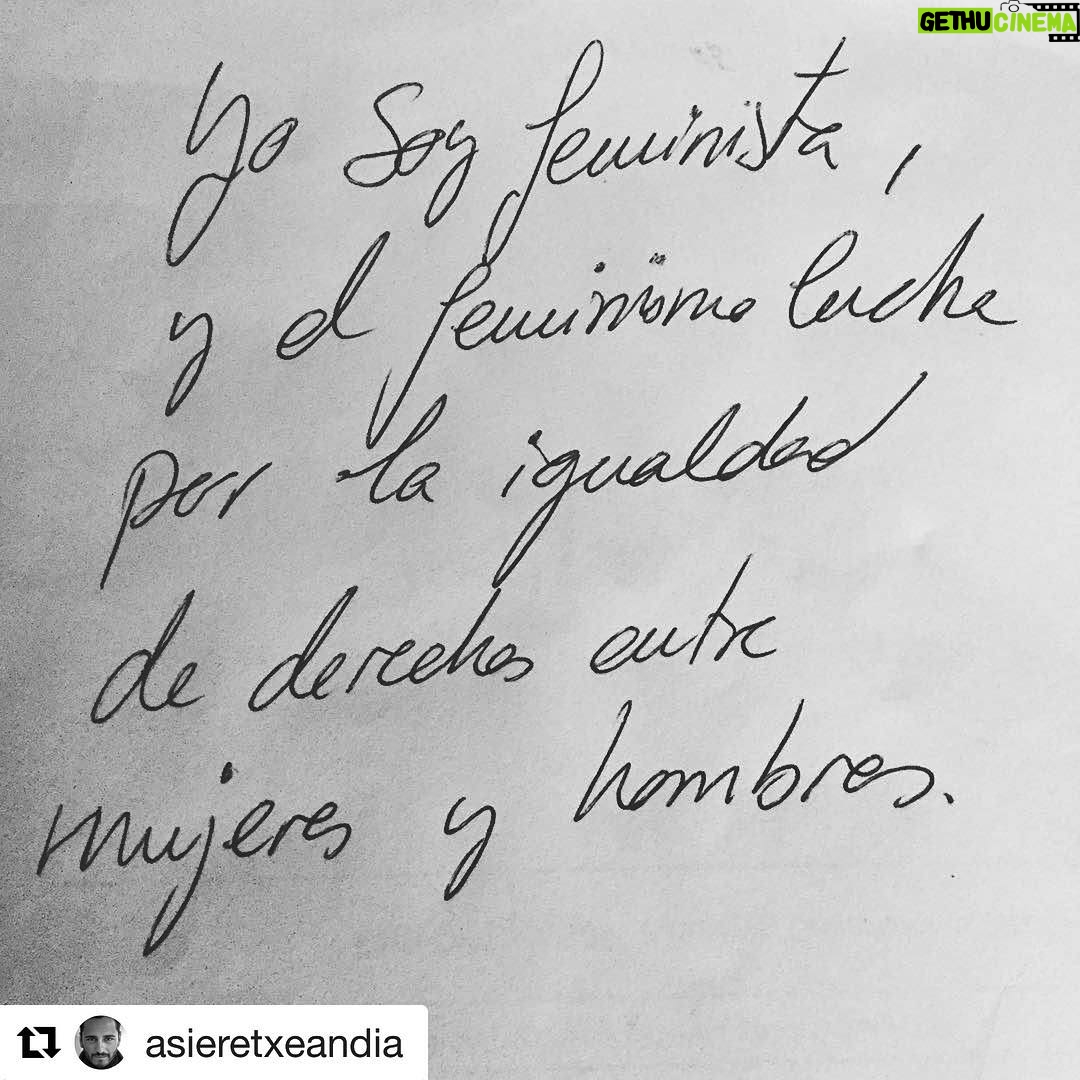 GETHUCINEMA
Yo Soy feminista,
y el feminismo lucha
por la igualdad
de derechos entre
mujeres y hombres.
asieretxeandia